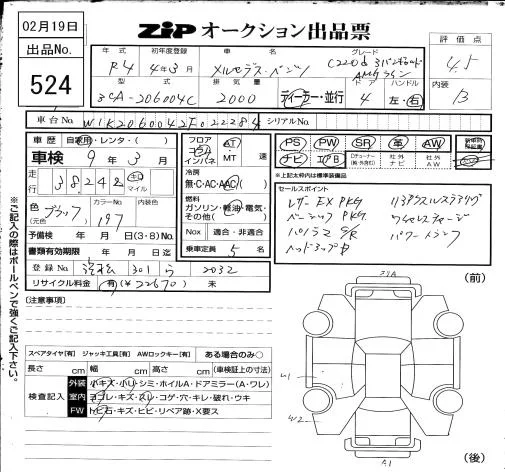 02月19日
ZIP オークション出品票
出品No.
524
年式 初年度登録 車名 グレード
R4 4年3月 メルセデス・ベンツ C220d
AMGライン
評価点
4.5
型式 排気量 ドア ハンドル
3CA-206004C 2000 ディーラー・並行 4 左・右
内装
B
車台No. W1K2060042F022284 シリアルNo.
車歴 自家用・レンタ・( )
車検 9年3月
走行 38242 キロ マイル
色(元色) ブラック カラーNo. 197 内装色
予備検 年 月 日(3・8)No.
書類有効期限 年 月 日迄
登録No. 浜松 301 ら 2032
リサイクル料金 有(¥22670) 未
フロア コラム インパネ AT MT 速
冷房
無・C・AC・AAC( )
燃料
ガソリン・軽油・電気・その他( )
Nox 適合・非適合
乗車定員 5名
PS PW SR 革 AW
ナビ エアB Dチューナー(純・外含む) 社外ナビ 社外AW
新車時保証書
*上記太枠内は標準装備品
セールスポイント
レザーEX PKG リアアクスルステアリング
ベーシックPKG ワイヤレスチャージ
パノラマS/R パワートランク
ヘッドアップD
※ご記入の際はボールペンで強くご記入下さい。
(注意事項)
(前)
スペアタイヤ[有] ジャッキ工具[有] AWロックキー[有] ある場合のみ○
長さ cm 幅 cm 高さ cm (車検証上の寸法)
検査記入
外装 小キズ・小U・シミ・ホイルA・ドアミラー(A・ワレ)
室内 ヨゴレ・キズ・スレ・コゲ・穴・キレ・破れ・ウキ
FW トビ石・キズ・ヒビ・リペア跡・X要ス
U1
W2
A1
(後)